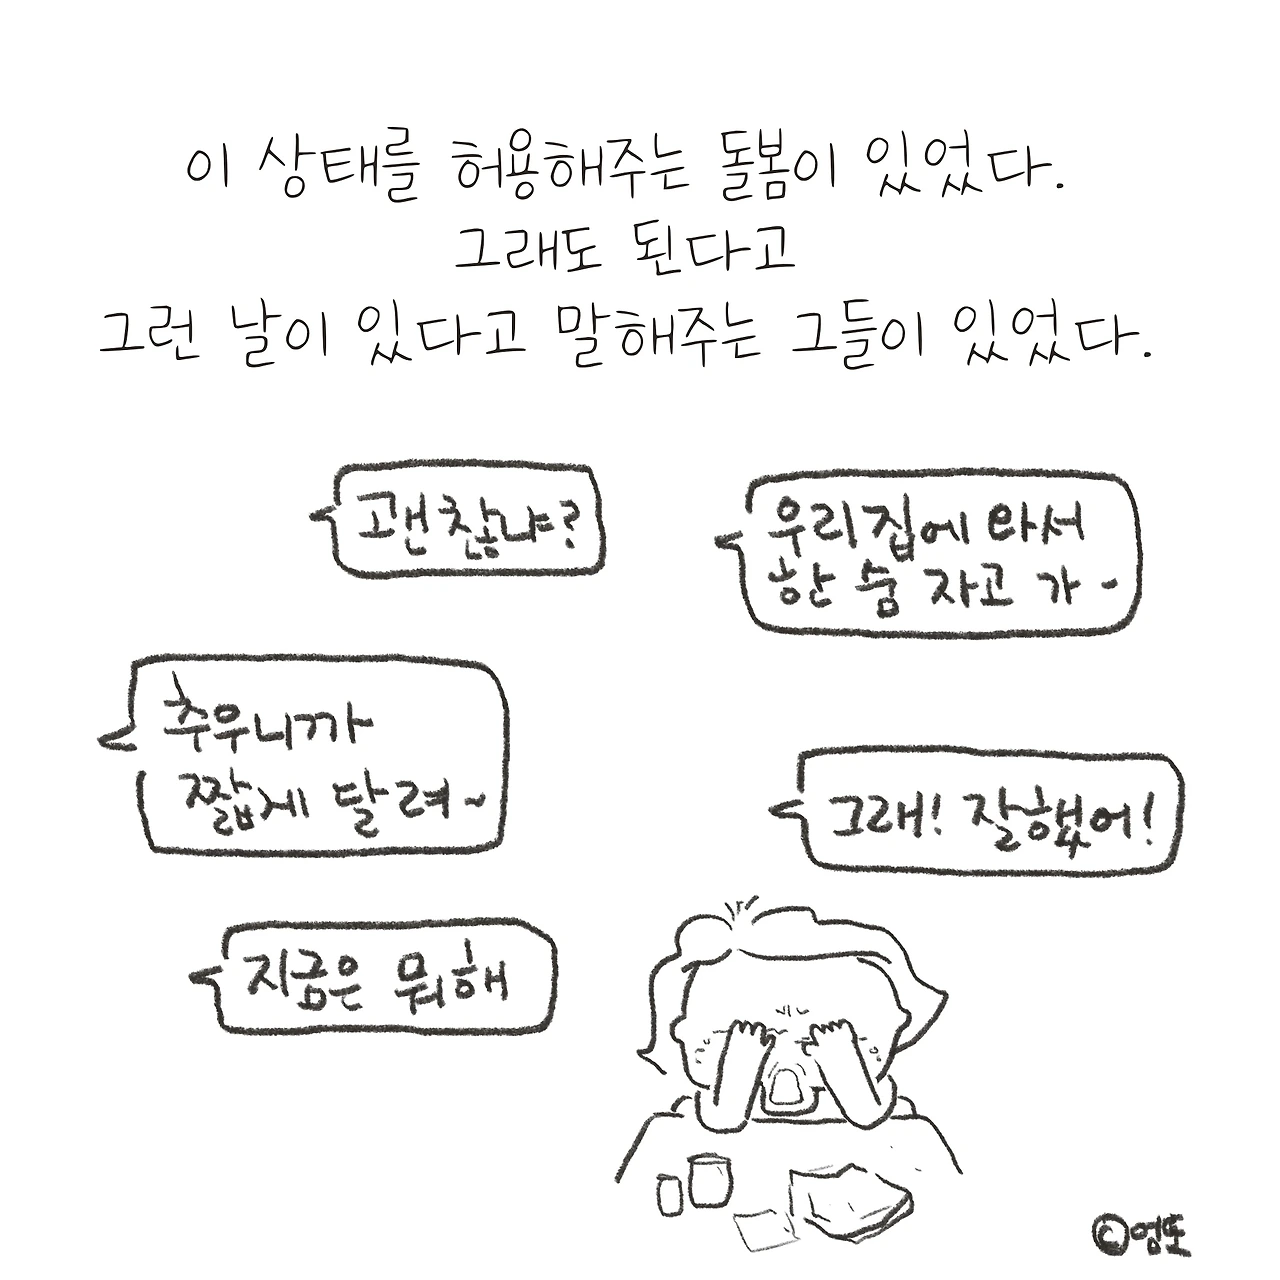 이 상태를 허용해주는 돌봄이 있었다.
그래도 된다고
그런 날이 있다고 말해주는 그들이 있었다.
괜찮냐?
우리집에 와서
한 숨 자고 가~
추우니까
짧게 달려~
그래! 잘했어!
지금은 뭐해
©엄또